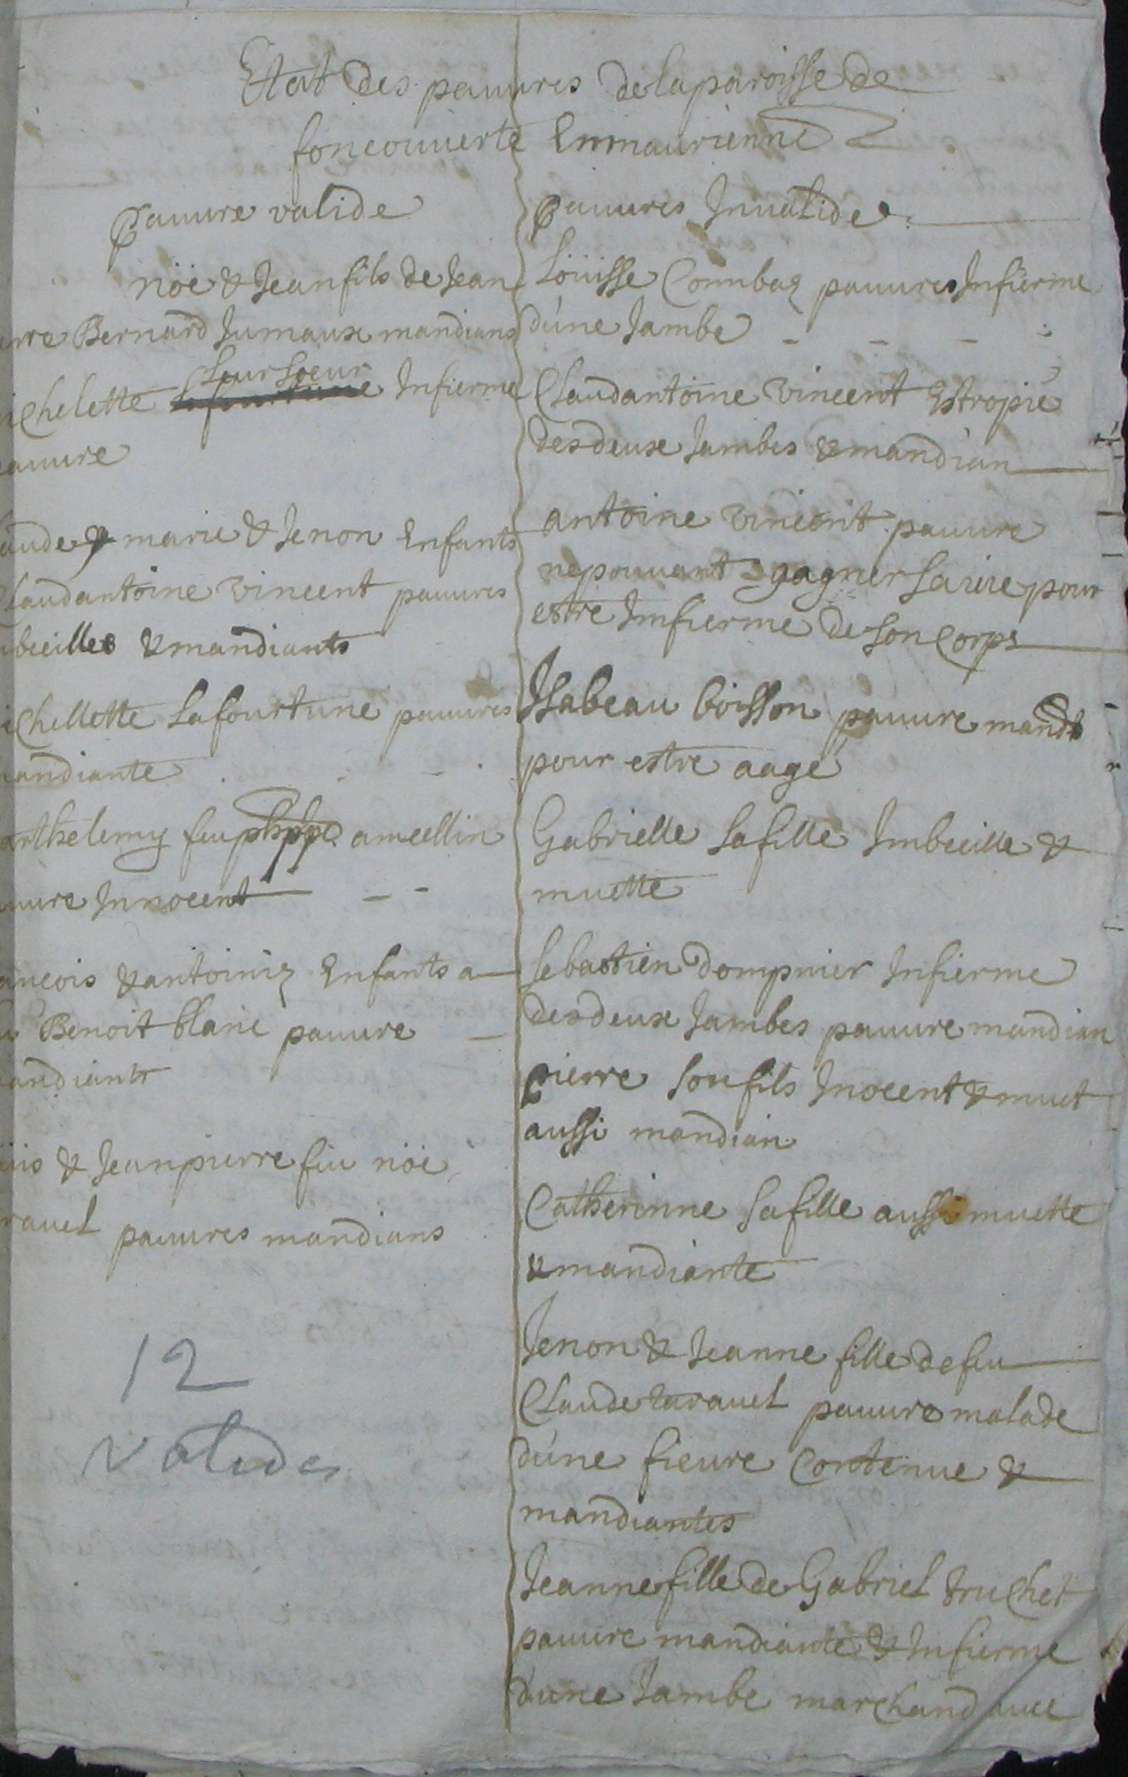 Etat des pauures delaparoisse de
foncouuerte Enmaurienne
pauure valide
nöe & Jean fils de Jean
rre Bernard Jumaux mandians
leur soeur
ichelette Infierme
auure
aude & marie & Jenon Enfants
Claudantoine vincent pauures
beeilles & mandiants
ichellette Lafourtune pauures
andiante
arthelemy feu phppe ameellin
uure Innocent
ancois & antoini Enfants a
Benoit blanc pauure
andiants
uis & Jeanpierre feu nöe
rauel pauures mandians
12
valides
pauures Inualide
Löuisse Connbaz pauures Infierme
dúne Jambe
Claudantoine vincent Estropié
desdeux Jambes & mandian
antoine vincent pauure
nepouuant gagner sa vie pour
estre Imfierme de son Corps
Isabeau boisson pauure mandt
pour estre aagé
Gabrielle safille Imbeeille &
muette
sebastien dompnier Infierme
desdeux Jambes pauure mandian
pierre son fils Inocent & muet
aussi mandian
Catherinne safille aussi muette
& mandiante
Jenon & Jeanne fille defeu
Claude tarauel pauure malade
dúne fieure Contenue &
mandiantes
Jeanne fille de Gabriel truchet
pauure mandiante & Infierme
dúne Jambe marchand auee